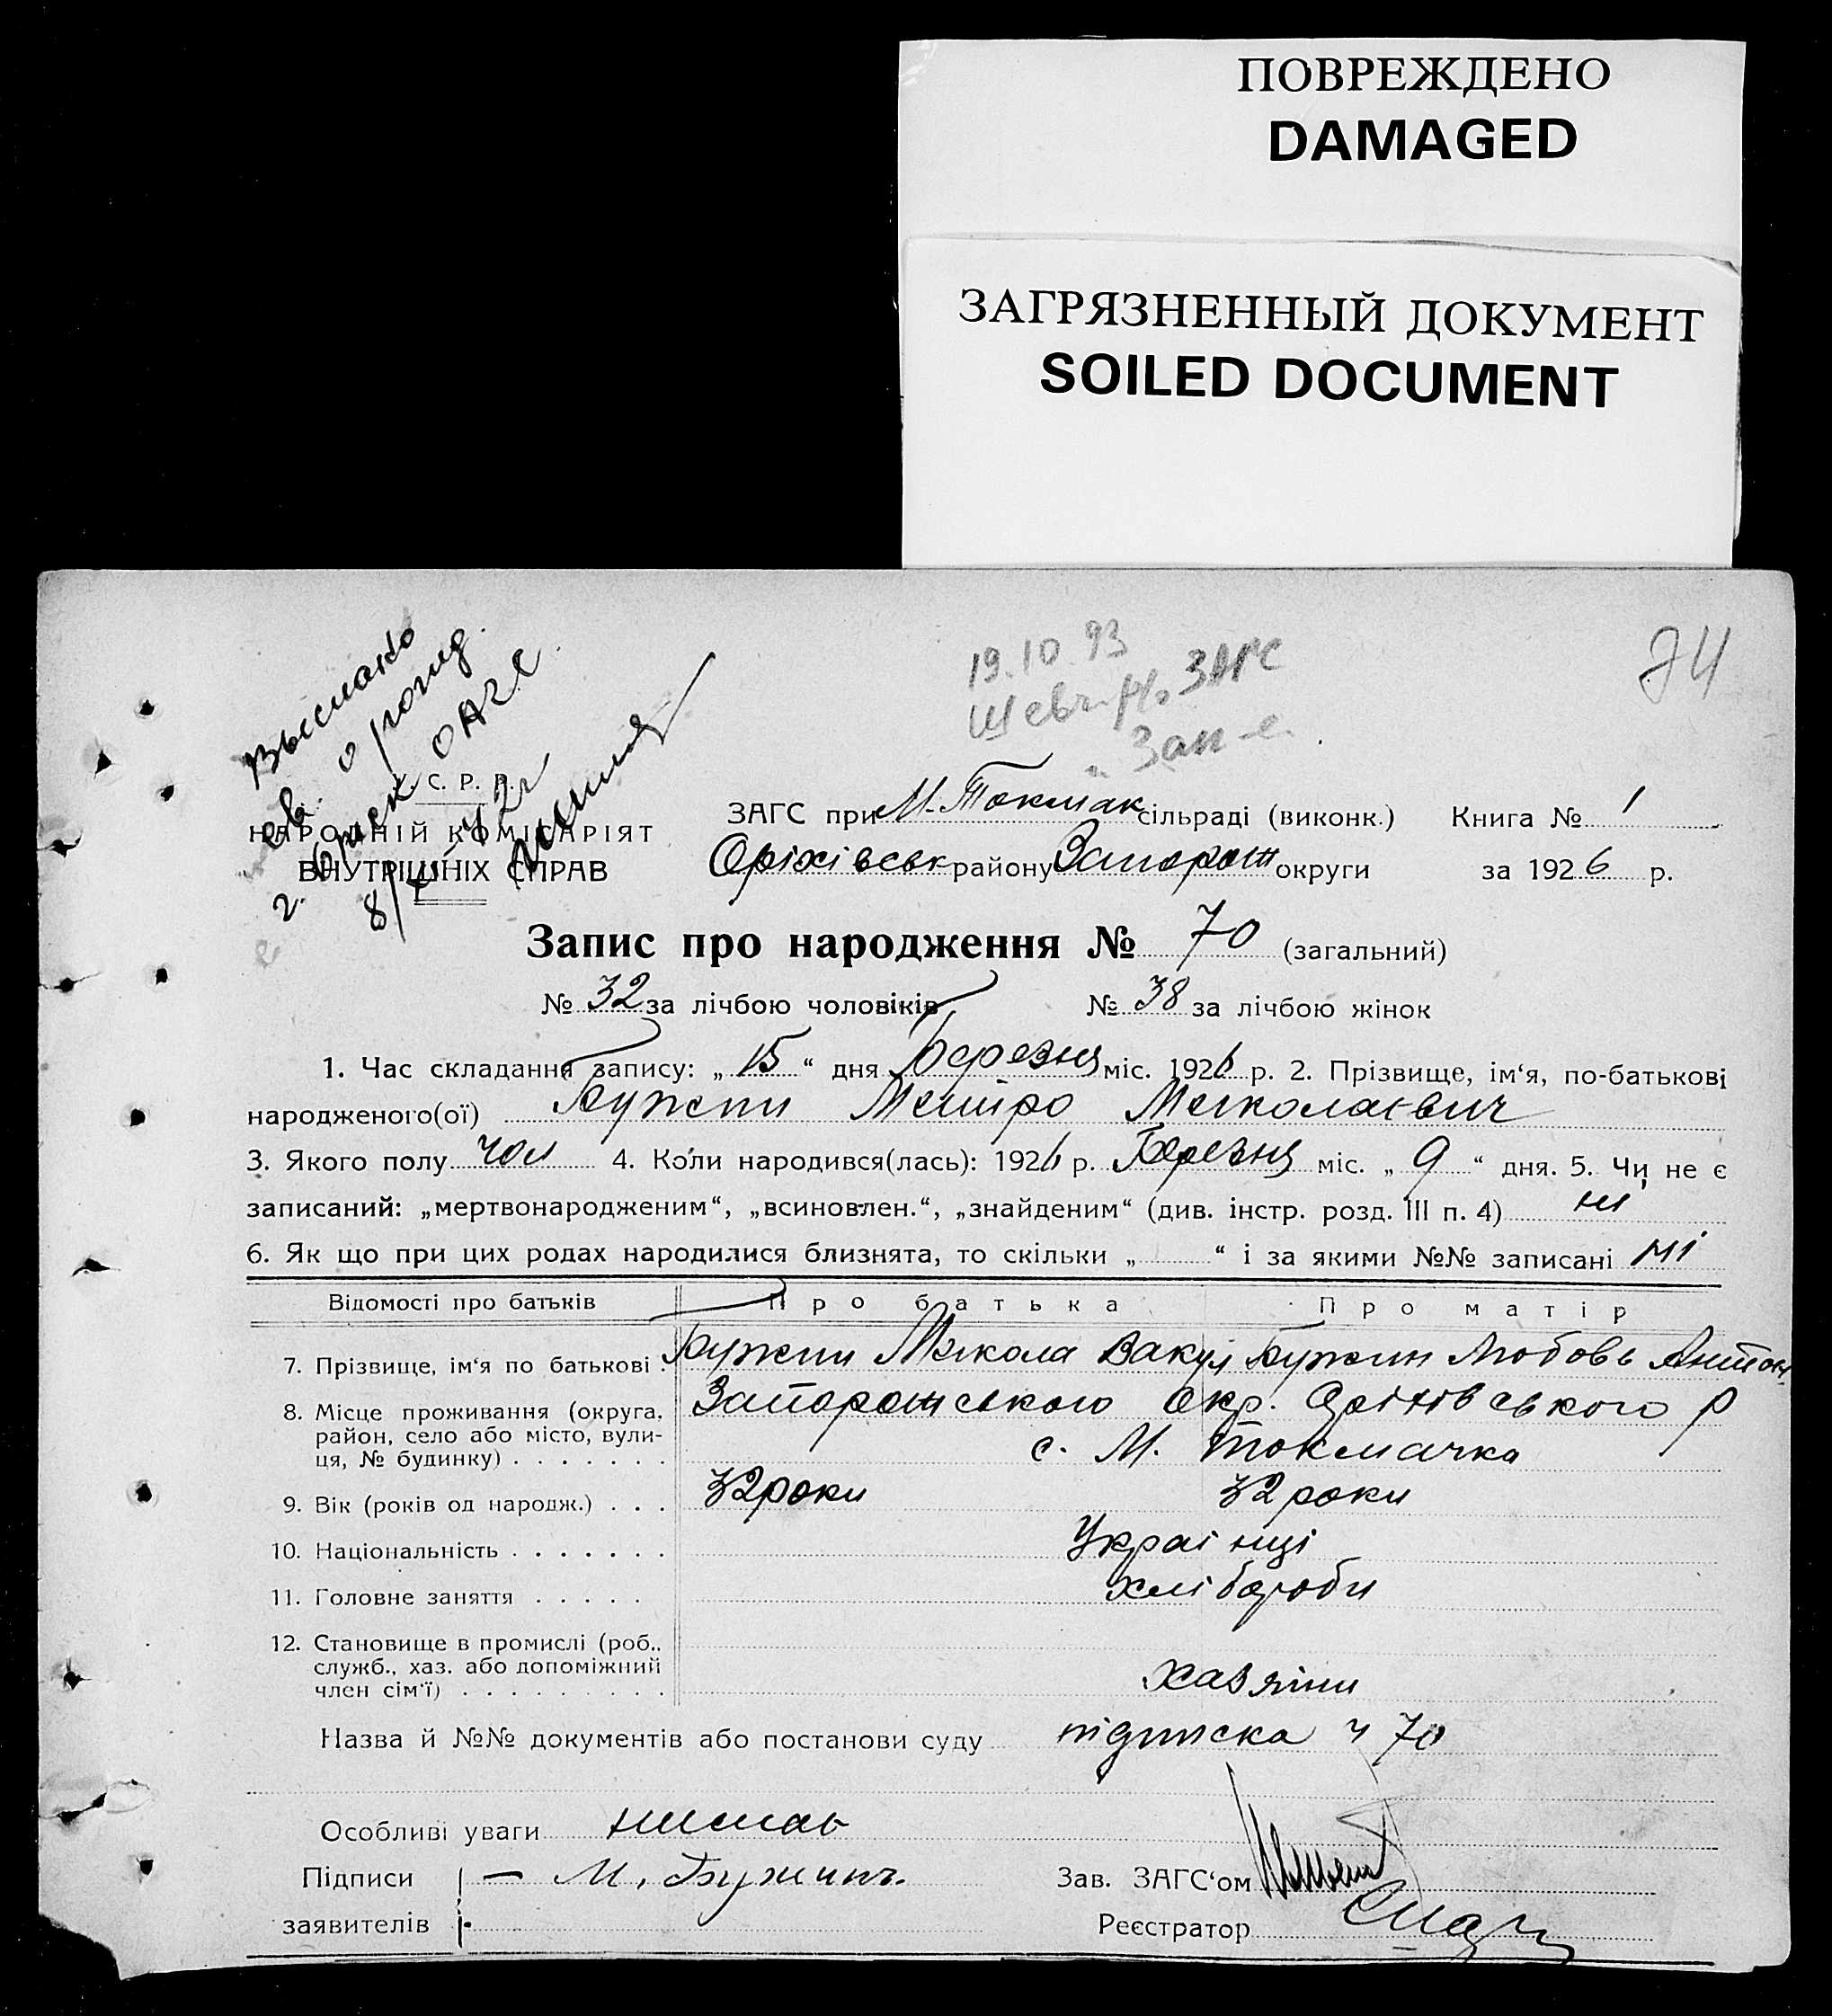 ПОВРЕЖДЕНО
DAMAGED
ЗАГРЯЗНЕННЫЙ ДОКУМЕНТ
SOILED DOCUMENT
74
19.10 93
Шевч. р/о ЗАГС
г. Зап-е.
Выслано
св. о рожд.
г.
8/
С. Р. Р.
НАРОДНІЙ КОМІСАРІЯТ
ВНУТРІШНІХ СПРАВ
ЗАГС при М. Токмак сільраді (виконк.) Книга № 1
Оріхівськ району Запорож округи за 1926 р.
Запис про народження № 70 (загальний)
№ 32 за лічбою чоловіків № 38 за лічбою жінок
1. Час складання запису: „ 15 “ дня березня міс. 1926 р. 2. Прізвище, ім‘я, по-батькові
народженого(ої) Бужин Митро Миколаєвич
3. Якого полу чол 4. Коли народився(лась): 1926 р. Березня міс. „ 9 “ дня. 5. Чи не є
записаний: „мертвонародженим“, „всиновлен.“, „знайденим“ (див. інстр. розд. III п. 4) ні
6. Як що при цих родах народилися близнята, то скільки „ “ і за якими №№ записані ні
Відомості про батьків Про батька Про матір
7. Прізвище, ім‘я по батькові Бужин Микола Вакул Бужин Любовь Антон
8. Місце проживання (округа, Запорожського окр. Оріхівського р
район, село або місто, вули-
ця, № будинку) с. М. Токмачка
9. Вік (років од народж.) 32 роки 32 роки
10. Національність Українці
11. Головне заняття хлібороби
12. Становище в промислі (роб.,
служб., хаз. або допоміжний
член сім‘ї) хазяїни
Назва й №№ документів або постанови суду підписка ч 70
Особливі уваги нимає
Підписи — М. Бужинъ. Зав. ЗАГС‘ом
заявителів Реєстратор